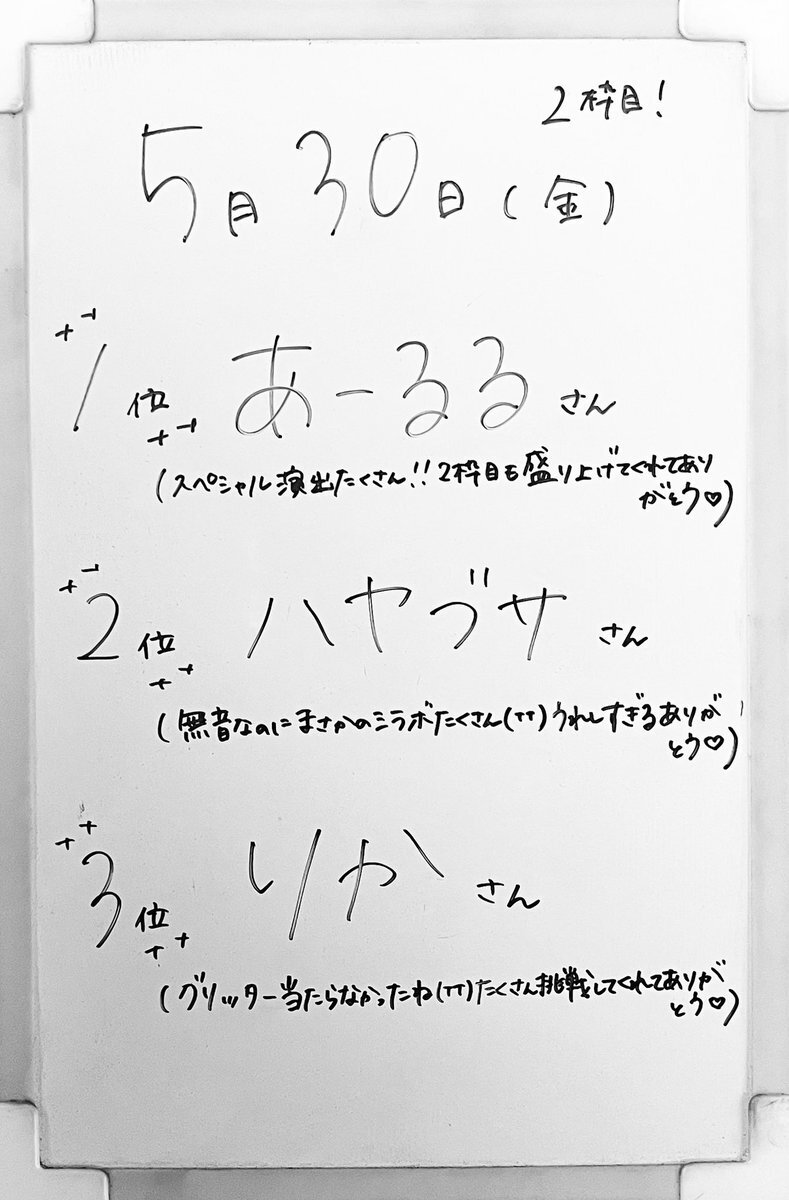 2枠目!
5月30日(金)
1位 あーるるさん
(スペシャル演出たくさん!!2枠目も盛り上げてくれてあり
がとう♡)
2位 ハヤブサさん
(無音なのにまさかのミラボたくさん(TT)うれしすぎるありが
とう♡)
3位 りかさん
(グリッター当たらなかったね(TT)たくさん挑戦してくれてありが
とう♡)